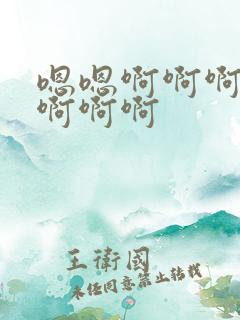 嗯嗯啊啊啊
啊啊啊
王衛國
未经同意禁止转载